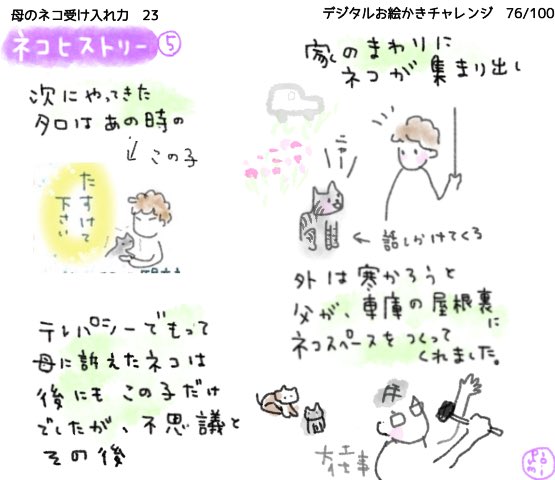 母のネコ受け入れ力 23
デジタルお絵かきチャレンジ 76/100
ネコヒストリー⑤
次にやってきた
タロはあの時の
↓この子
たすけて
下さい
テレパシーでもって
母に訴えたネコは
後にもこの子だけ
でしたが、不思議と
その後
家のまわりに
ネコが集まり出し
ニャー
←話しかけてくる
外は寒かろうと
父が、車庫の屋根裏に
ネコスペースをつくって
くれました。
大工
仕事